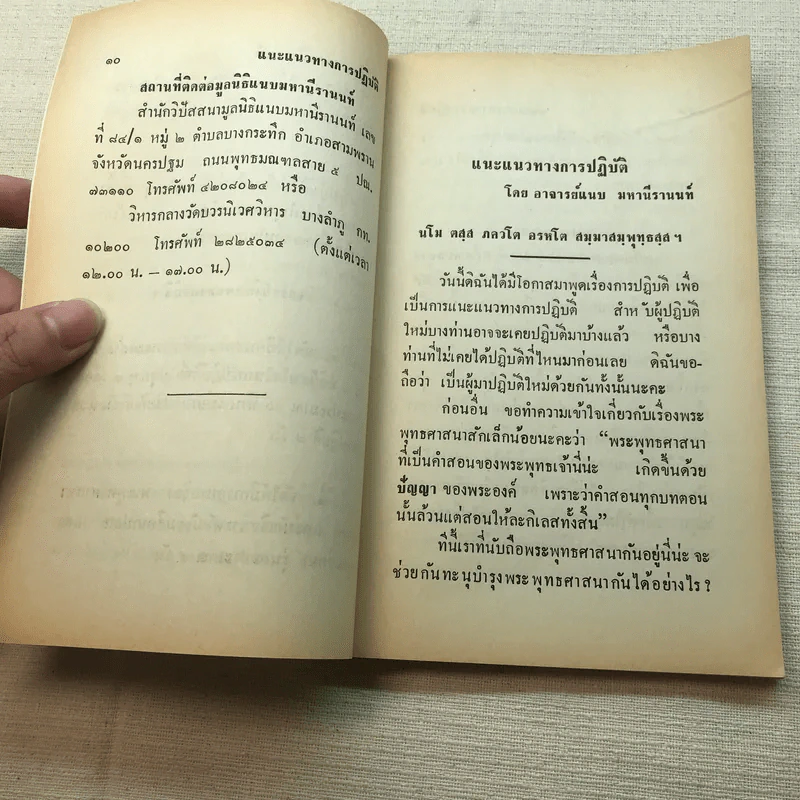 ๑๐ แนะแนวทางการปฏิบัติ
สถานที่ติดต่อมูลนิธิแนบมหานีรานนท์
สำนักวิปัสสนามูลนิธิแนบมหานีรานนท์ เลข
ที่ ๘๔/๑ หมู่ ๒ ตำบลบางกระทึก อำเภอสามพราน
จังหวัดนครปฐม ถนนพุทธมณฑลสาย ๕ ปณ.
๗๓๑๑๐ โทรศัพท์ ๔๒๐๘๐๒๔ หรือ
วิหารกลางวัดบวรนิเวศวิหาร บางลำภู กท.
๑๐๒๐๐ โทรศัพท์ ๒๘๒๕๐๓๔ (ตั้งแต่เวลา
๑๒.๐๐ น. – ๑๗.๐๐ น.)
แนะแนวทางการปฏิบัติ
โดย อาจารย์แนบ มหานีรานนท์
นโม ตสฺส ภควโต อรหโต สมฺมาสมฺพุทฺธสฺส ฯ
วันนี้ดิฉันได้มีโอกาสมาพูดเรื่องการปฏิบัติ เพื่อ
เป็นการแนะแนวทางการปฏิบัติ สำหรับผู้ปฏิบัติ
ใหม่บางท่านอาจจะเคยปฏิบัติมาบ้างแล้ว หรือบาง
ท่านที่ไม่เคยได้ปฏิบัติที่ไหนมาก่อนเลย ดิฉันขอ-
ถือว่า เป็นผู้มาปฏิบัติใหม่ด้วยกันทั้งนั้นนะคะ
ก่อนอื่น ขอทำความเข้าใจเกี่ยวกับเรื่องพระ
พุทธศาสนาสักเล็กน้อยนะคะว่า “พระพุทธศาสนา
ที่เป็นคำสอนของพระพุทธเจ้านี่น่ะ เกิดขึ้นด้วย
ปัญญา ของพระองค์ เพราะว่าคำสอนทุกบทตอน
นั้นล้วนแต่สอนให้ละกิเลสทั้งสิ้น”
ทีนี้เราที่นับถือพระพุทธศาสนากันอยู่นี่น่ะ จะ
ช่วยกันทะนุบำรุงพระพุทธศาสนากันได้อย่างไร ?